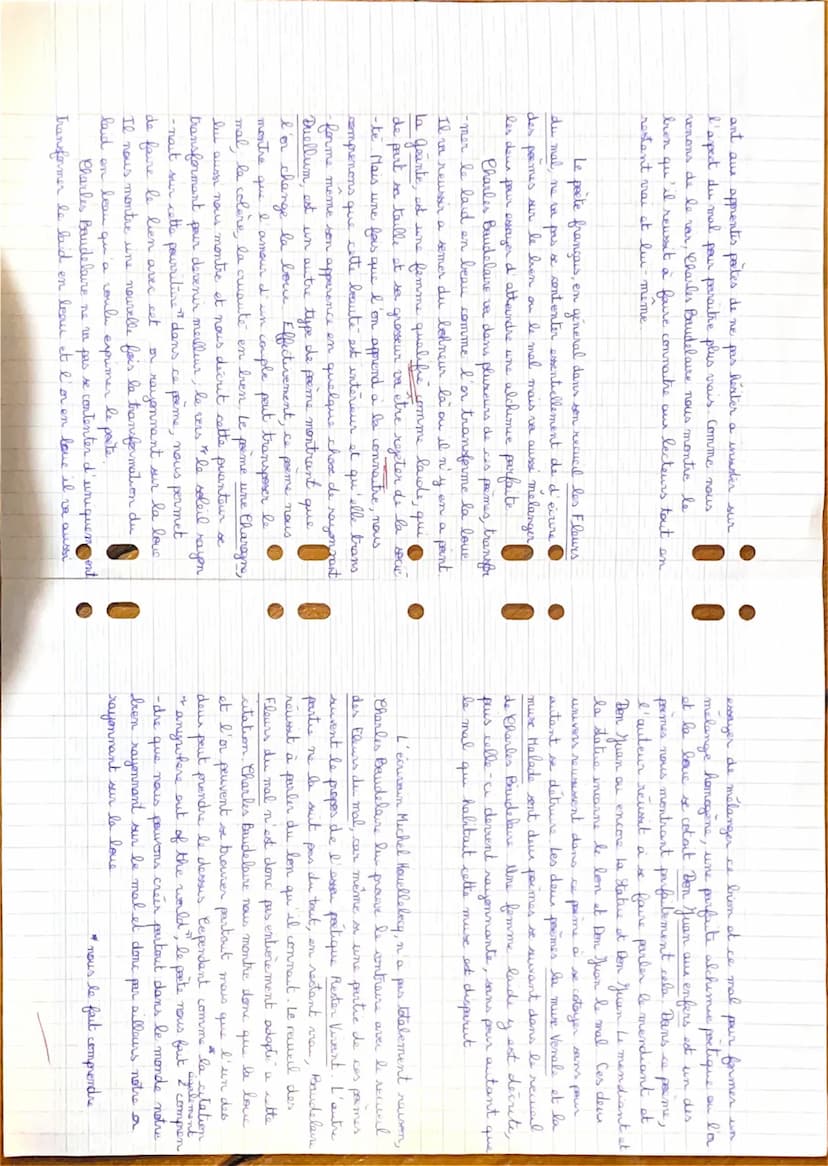 ant aux apprentis poètes de ne pas hésiter a insister sur
l'aspect du mal pour paraitre plus vrais. Comme nous
venons de le voir, Charles Baudelaire nous montre le
bien qu'il reussit à faire connaitre aux lecteurs tout en
restant vrai et lui-même.
Le poète français, en général dans son recueil les Fleurs
du mal, ne va pas se contenter essentiellement de d'écrire
des poèmes sur le bien ou le mal mais va aussi mélanger
les deux pour essayer d'atteindre une alchimie parfaite
Charles Baudelaire va dans plusieurs de ces poèmes, transfor
-mer le laid en beau comme l'or transforme la boue
Il va reussir a semer du bonheur là ou il n'y en a point
La Géante, est une femme qualifié comme laide, qui
de part sa taille et sa grosseur va etre rejeter de la socié-
-té Mais une fois que l'on apprend à la connaitre, nous
comprenons que cette beauté est intérieur et qu'elle trans
-forme même son apparence en quelque chose de rayonnant
Duellum, est un autre type de poème montrant que
l'or change la boue Effectivement, ce poème nous
montre que l'amour d'un couple peut transposer le
mal, la colère, la cruauté en bien Le poème une Charogne,
lui aussi nous montre et nous décrit cette puanteur se
transformant pour devenir meilleur, le vers "le soleil rayon
-nait sur cette pourriture" dans ce poème, nous permet
de faire le lien avec cet or rayonnant sur la boue
Il nous montre une nouvelle fois la transformation du
laid en beau qu'a voulu exprimer le poète.
Charles Baudelaire ne va pas se contenter d'uniquement
transformer le laid en beau et l'or en boue il va aussi
essayer de mélanger ce bien et ce mal pour former un
mélange homogène, une parfaite alchimie poétique ou l'or
et la boue se cotoit Don Juan aux enfers est un des
poèmes nous montrant parfaitement cela. Dans ce poème,
l'auteur réussit à se faire parler le mendiant et
Don Juan ou encore la Statue et Don Juan Le mendiant et
la statue incarne le bon et Don Juan le mal Ces deux
univers reussissent dans ce poème à se cotoyer sans pour
autant se détruire Les deux poèmes la muse Vénale et la
muse Malade sont deux poèmes se suivant dans le recueil
de Charles Baudelaire Une femme laide y est décrite,
puis celle-ci devient rayonnante, sans pour autant que
le mal qui habitait cette muse est disparut
L'écrivain Michel Houellebecq, n'a pas totalement raison,
Charles Baudelaire lui prouve le contraire avec le recueil
des Fleurs du mal, car même si une partie de ces poèmes
suivent le propos de l'essai poétique Rester Vivant. L'autre
partie ne la suit pas du tout, en restant vrai, Baudelaire
réussit à parler du bon qu'il connait. Le recueil des
Fleurs du mal n'est donc pas entièrement adapté a cette
citation Charles Baudelaire nous montre donc que la boue
et l'or peuvent se trouver partout mais que l'un des
deux peut prendre le dessus Cependant comme * la citation
" anywhere out of the world", le poète nous fait également compren
-dre que nous pouvons créer partout dans le monde notre
bien rayonnant sur le mal et donc par ailleurs notre or
rayonnant sur la boue
* nous le fait comprendre